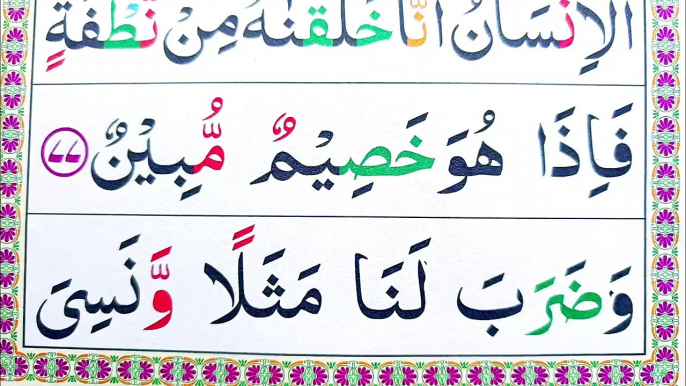 الْاِنْسَانُ اَنَّا خَلَقْنٰهُ مِنْ نُّطْفَةٍ
فَاِذَا هُوَ خَصِيْمٌ مُّبِيْنٌ ۷۷
وَضَرَبَ لَنَا مَثَلًا وَّنَسِىَ